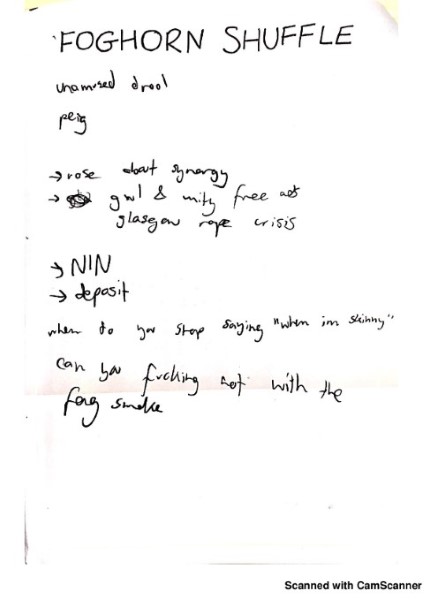 FOGHORN SHUFFLE
unamused drool
peig
→ rose about synergy
→ gwl & mity free act
glasgow rape crisis
→ NIN
→ deposit
when do you stop saying "when im skinny"
can you fucking not with the
fag smoke
Scanned with CamScanner